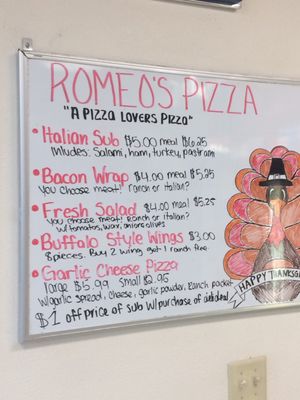 ROMEO'S PIZZA
"A PIZZA LOVERS PIZZA"
• Italian Sub $5.00 meal $6.25
Inludes: Salami, ham, turkey, pastrami
• Bacon Wrap $4.00 meal $5.25
You choose meat! ranch or Italian?
• Fresh Salad $4.00 meal $5.25
You choose meat! Ranch or Italian?
w/tomatoes, onions olives
• Buffalo Style Wings $3.00
8 pieces. Buy 2 wings get 1 ranch free
• Garlic Cheese Pizza
large $5.99 Small $2.95
w/garlic spread, cheese, garlic powder, Ranch packet
$1 off price of sub w/purchase of
HAPPY THANKSG